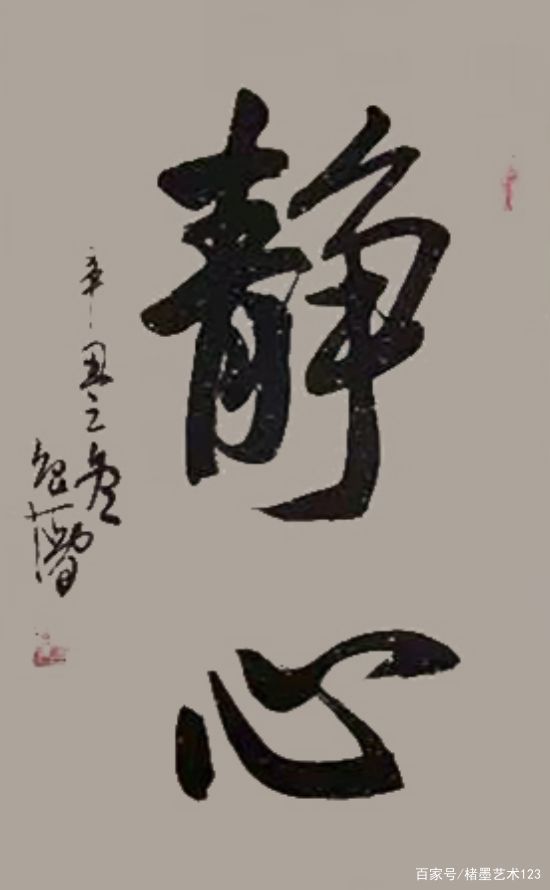 静心
辛丑之冬
百家号/楮墨艺术123